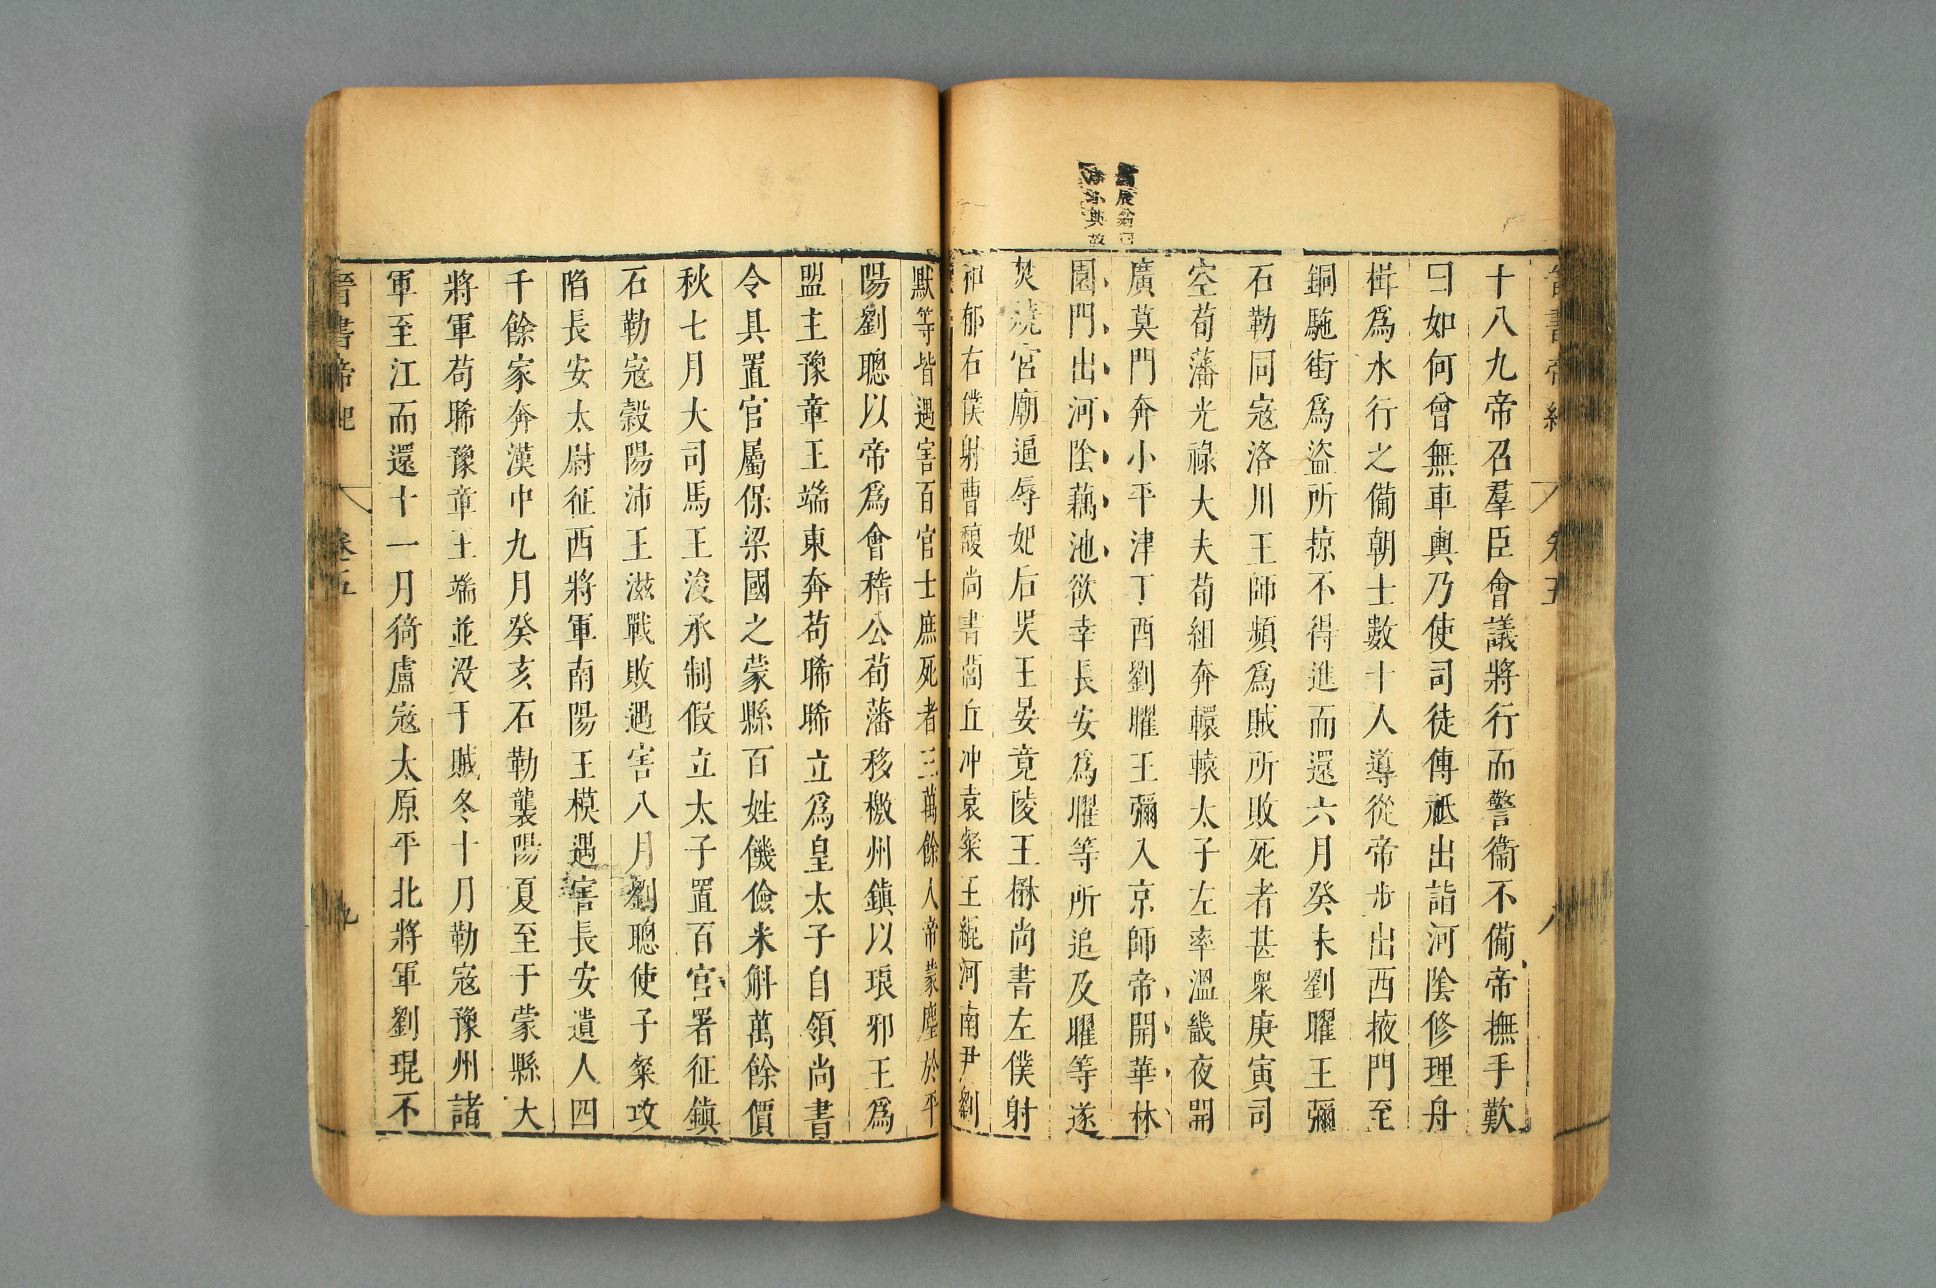 晉書帝紀 卷五 八
十八九帝召羣臣會議將行而警衞不備帝撫手歎
曰如何曾無車輿乃使司徒傳祗出詣河陰修理舟
楫爲水行之備朝士數十人導從帝步出西掖門至
銅駞街爲盜所掠不得進而還六月癸未劉曜王彌
石勒同寇洛川王師頻爲賊所敗死者甚衆庚寅司
空荀藩光祿大夫荀組奔轘轅太子左率溫畿夜開
廣莫門奔小平津丁酉劉曜王彌入京師帝開華林
園門出河陰藕池欲幸長安爲曜等所追及曜等遂
焚燒宮廟逼辱妃后吳王晏竟陵王楙尚書左僕射
和郁右僕射曹馥尚書閭丘沖袁粲王緄河南尹劉
默等皆遇害百官士庶死者三萬餘人帝蒙塵於平
陽劉聰以帝爲會稽公荀藩移檄州鎮以琅邪王爲
盟主豫章王端東奔苟晞晞立爲皇太子自領尚書
令具置官屬保梁國之蒙縣百姓饑儉米斛萬餘價
秋七月大司馬王浚承制假立太子置百官署征鎮
石勒寇穀陽沛王滋戰敗遇害八月劉聰使子粲攻
陷長安太尉征西將軍南陽王模遇害長安遺人四
千餘家奔漢中九月癸亥石勒襲陽夏至于蒙縣大
將軍苟晞豫章王端並没于賊冬十月勒寇豫州諸
軍至江而還十一月猗盧寇太原平北將軍劉琨不
晉書帝紀 卷五 九